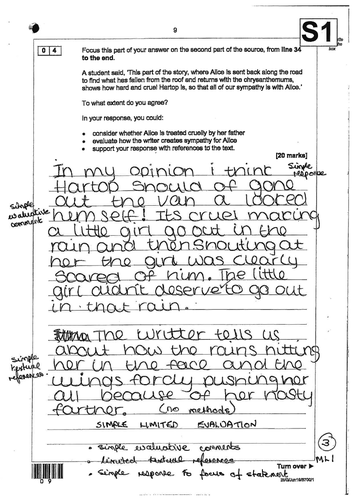 9
S1
0 4
Focus this part of your answer on the second part of the source, from line 34
to the end.
A student said, 'This part of the story, where Alice is sent back along the road
to find what has fallen from the roof and returns with the chrysanthemums,
shows how hard and cruel Hartop is, so that all of our sympathy is with Alice.'
To what extent do you agree?
In your response, you could:
• consider whether Alice is treated cruelly by her father
• evaluate how the writer creates sympathy for Alice
• support your response with references to the text.
[20 marks]
Simple
response
In my opinion i think
Hartop should of gone
out the van a looked
simple
evaluative
comment
himself! Its cruel making
a little girl go out in the
rain and then shouting at
her the girl was clearly
scared of him. The little
girl didn't deserve to go out
in that rain.
The writter tells us
about how the rains hitting
simple
textual
references
her in the face and the
wings fordy pushing her
all because of her nasty
farther.
(no methods)
SIMPLE LIMITED EVALUATION
• simple evaluative comments
• limited textual reference
• simple response to focus of statement
3
ML1
Turn over
0 9